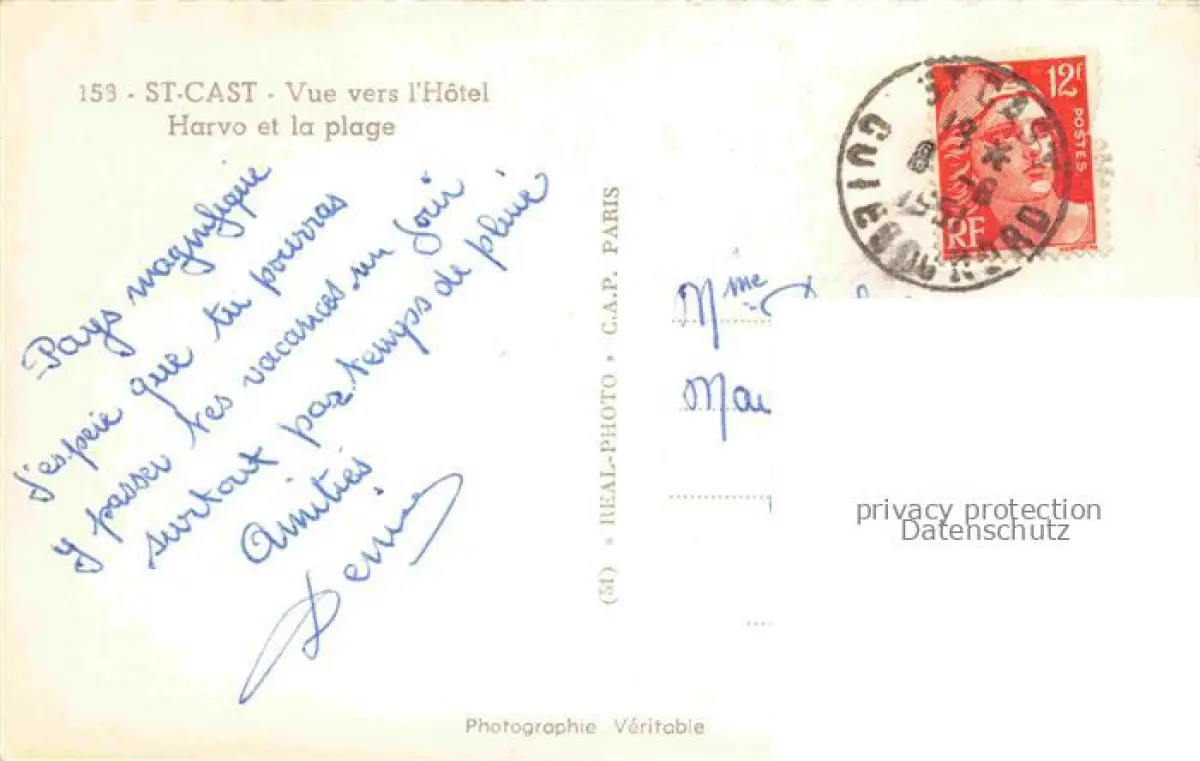 153 - ST-CAST - Vue vers l'Hôtel
Harvo et la plage
Pays magnifique
J'espère que tu pourras
y passer tes vacances un jour
surtout par temps de pluie
Amitiés
Denise
(51) • REAL-PHOTO • C.A.P. PARIS
12f
POSTES
RF
ST CAST
GUILDO NORD
Mme
privacy protection
Datenschutz
Photographie Véritable